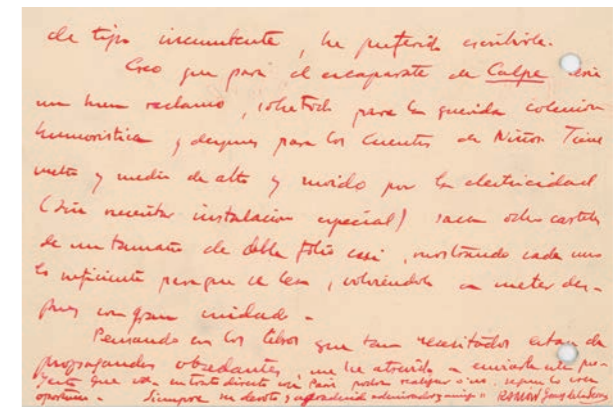 de tipo incumbente, he preferido escribirle.
Creo que para el escaparate de Calpe sería
un buen reclamo, sobretodo para la querida colección
humoristica y despues para los Cuentos de Niños. Tiene
metro y medio de alto y movido por la electricidad
(sin necesitar instalacion especial) saca ocho carteles
de un tamaño de doble folio casi, mostrando cada uno
lo suficiente para que se lea, volviendolo a meter des-
pues con gran suavidad.
Pensando en los libros que tan necesitados estan de
propagandas me he atrevido a enviarle este pro-
yecto que en trato directo con Paris podrian realizar o no, segun lo crean
oportuno. Siempre su devoto y agradecido admirador y amigo RAMON Gomez de la Serna